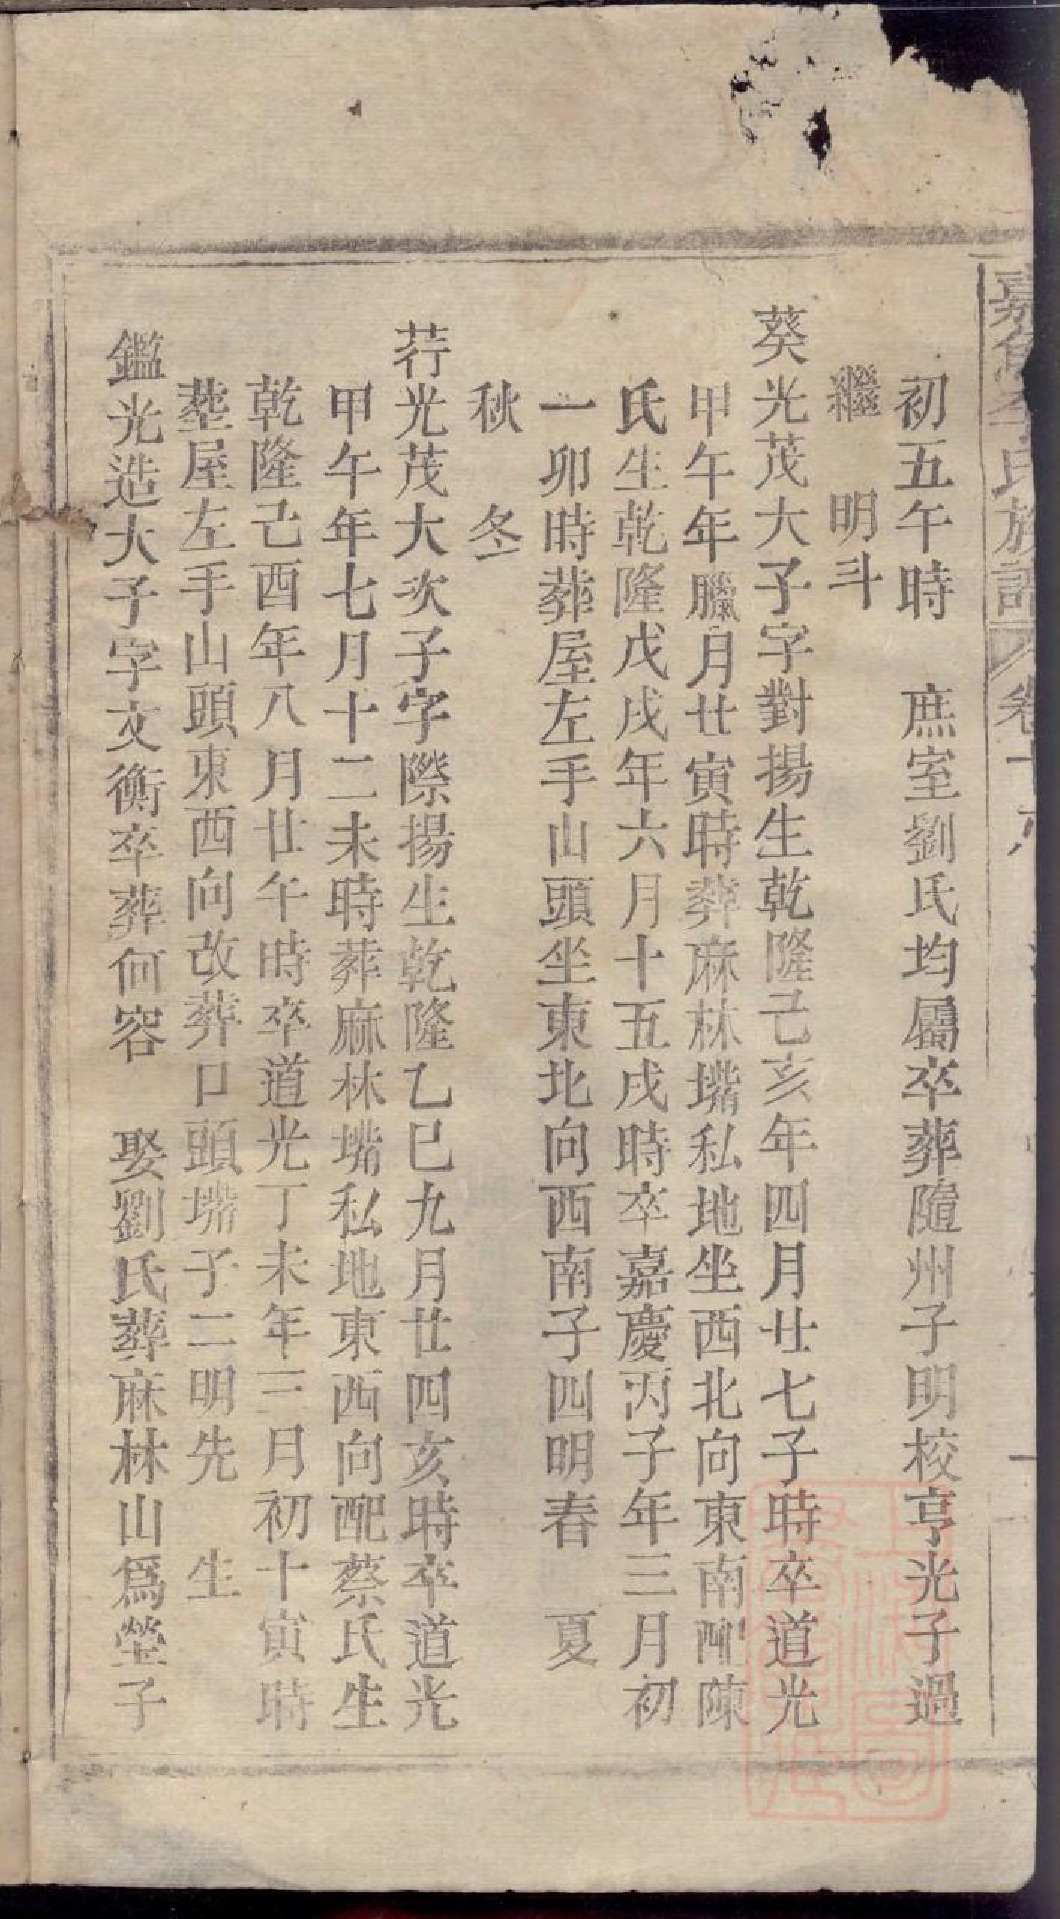 氏族譜 卷十六
初五午時　庶室劉氏均屬卒葬隨州子明校亨光子過
繼　明斗
葵光茂大子字對揚生乾隆己亥年四月廿七子時卒道光
甲午年臘月廿寅時葬麻林墈私地坐西北向東南配陳
氏生乾隆戊戌年六月十五戌時卒嘉慶丙子年三月初
一卯時葬屋左手山頭坐東北向西南子四明春　夏
秋　冬
荇光茂大次子字際揚生乾隆乙巳九月廿四亥時卒道光
甲午年七月十二未時葬麻林私地東西向配蔡氏生
乾隆己酉年八月廿午時卒道光丁未年三月初十寅時
塟屋左手山頭東西向改葬口頭子二明先　生
鑑光造大子字文衡卒葬何容　娶劉氏葬麻林山爲塋子